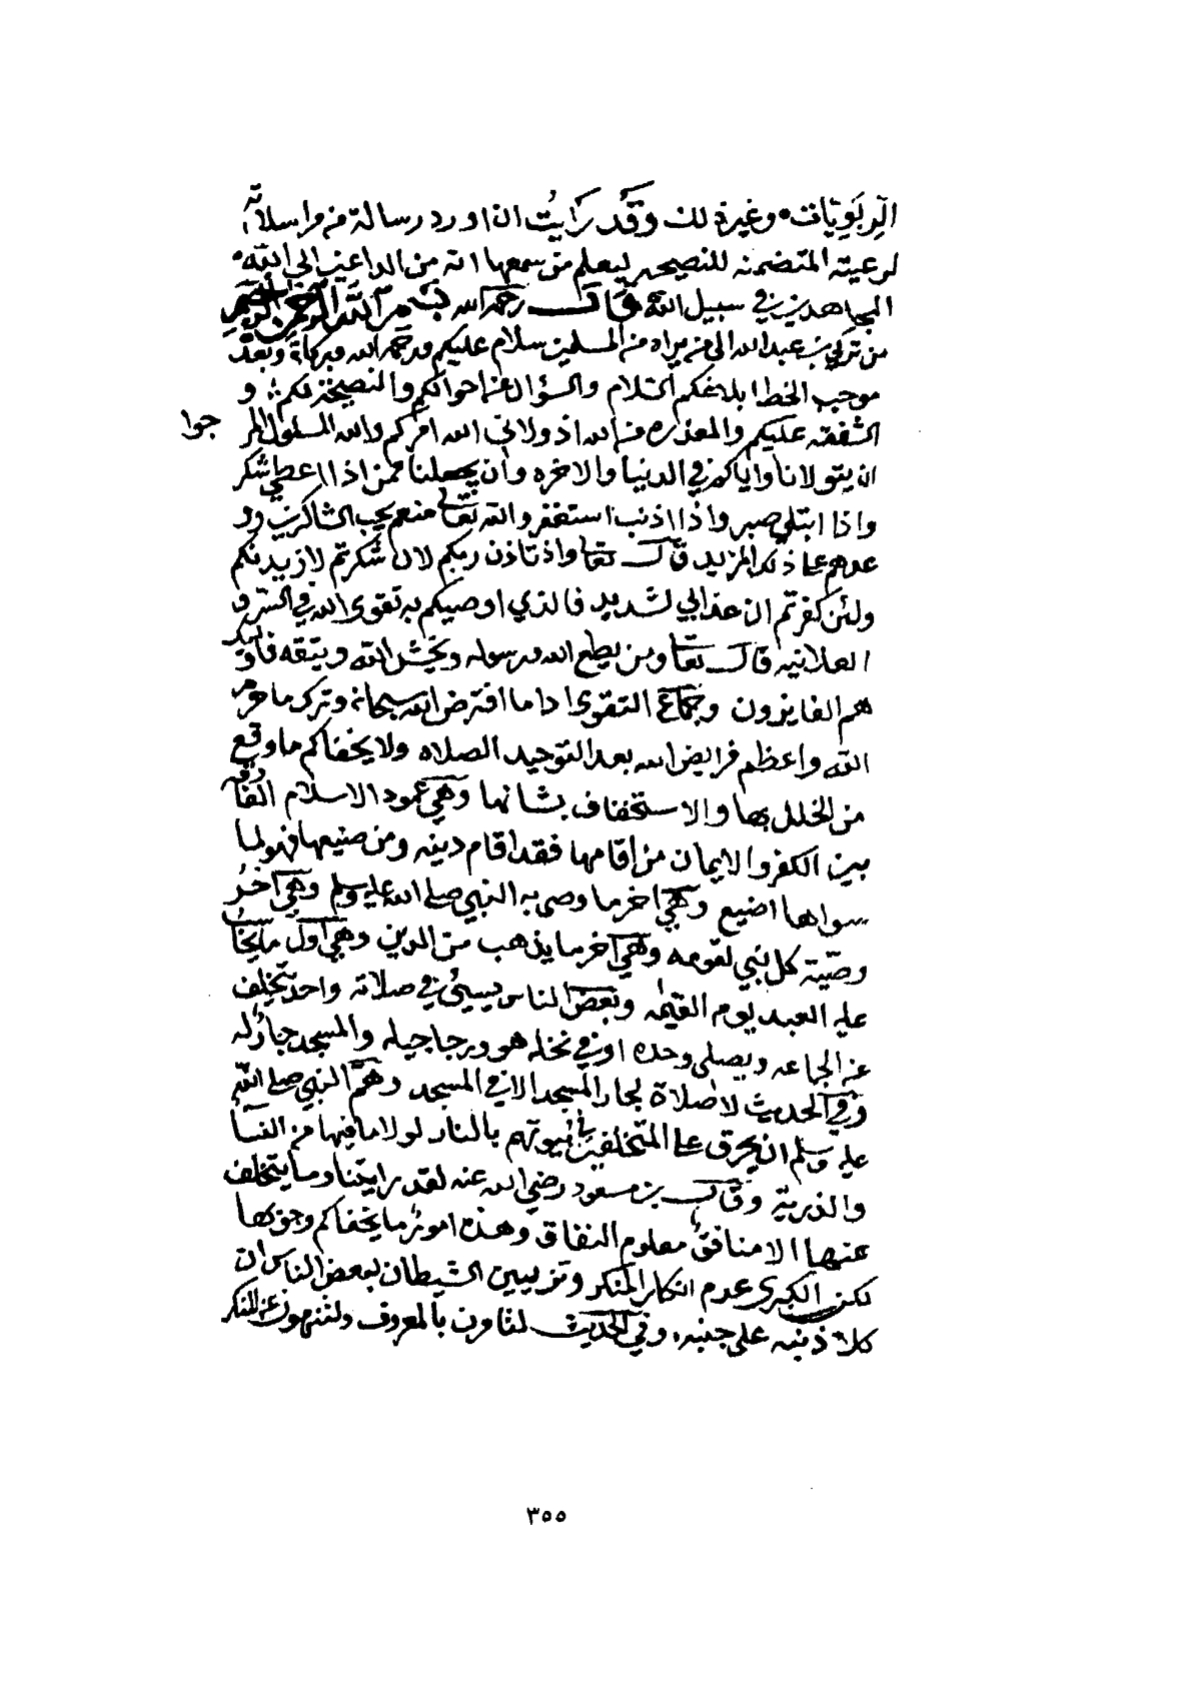 الربويات وغير ذلك وقد رايت ان اورد رسالة من مراسلاته
لرعيته المتضمنه للنصيحه ليعلم من سمعها انه من الداعين الى الله
المجاهدين في سبيل الله قال رحمه الله بسم الله الرحمن الرحيم
من تركي بن عبدالله الى من يراه من المسلمين سلام عليكم ورحمة الله وبركاته وبعد
موجب الخط ابلاغكم السلام والسؤال عن احوالكم والنصيحة لكم و
الشفقه عليكم والمعذره من الله اذ ولاني الله امركم والله المسئول المر جوا
ان يتولانا واياكم في الدنيا والاخره وان يجعلنا ممن اذا اعطي شكر
واذا ابتلي صبر واذا اذنب استغفر والله تعالى منعم يحب الشاكرين وو
عدهم على ذلك المزيد قال تعالى واذ تاذن ربكم لان شكرتم لازيدنكم
ولئن كفرتم ان عذابي لشديد فالذي اوصيكم به تقوى الله في السر و
العلانيه قال تعالى ومن يطع الله ورسوله ويخش الله ويتقه فاولئك
هم الفايزون وجماع التقوى اداما افترض الله سبحانه وترك ما حرم
الله واعظم فرايض الله بعد التوحيد الصلاه ولا يخفاكم ما وقع
من الخلل بها والاستخفاف بشانها وهي عمود الاسلام الفارقه
بين الكفر والايمان من اقامها فقد اقام دينه ومن ضيعها فهو لما
سواها اضيع وهي اخر ما وصى به النبي صلى الله عليه وسلم وهي اخر
وصية كل نبي لقومه وهي اخر ما يذهب من الدين وهي اول ما يحاسب
عليه العبد يوم القيمه وبعض الناس يسيئ في صلاته واحد يتخلف
عن الجماعه ويصلي وحده او في نخله هو ورجاجيله والمسجد جار له
وفي الحديث لا صلاة لجار المسجد الا في المسجد وهم النبي صلى الله
عليه وسلم ان يحرق على المتخلفين في بيوتهم بالنار لولا ما فيها من النسا
والذرية وقال بن مسعود رضي الله عنه لقد رايتنا وما يتخلف
عنها الا منافق معلوم النفاق وهذه امور ما يخفاكم وجوبها
لكن الكبرى عدم انكار المنكر وتزيين الشيطان لبعض الناس ان
كلا ذنبه على جنبه وفي الحديث لتأمرن بالمعروف ولتنهون عن المنكر
٣٥٥